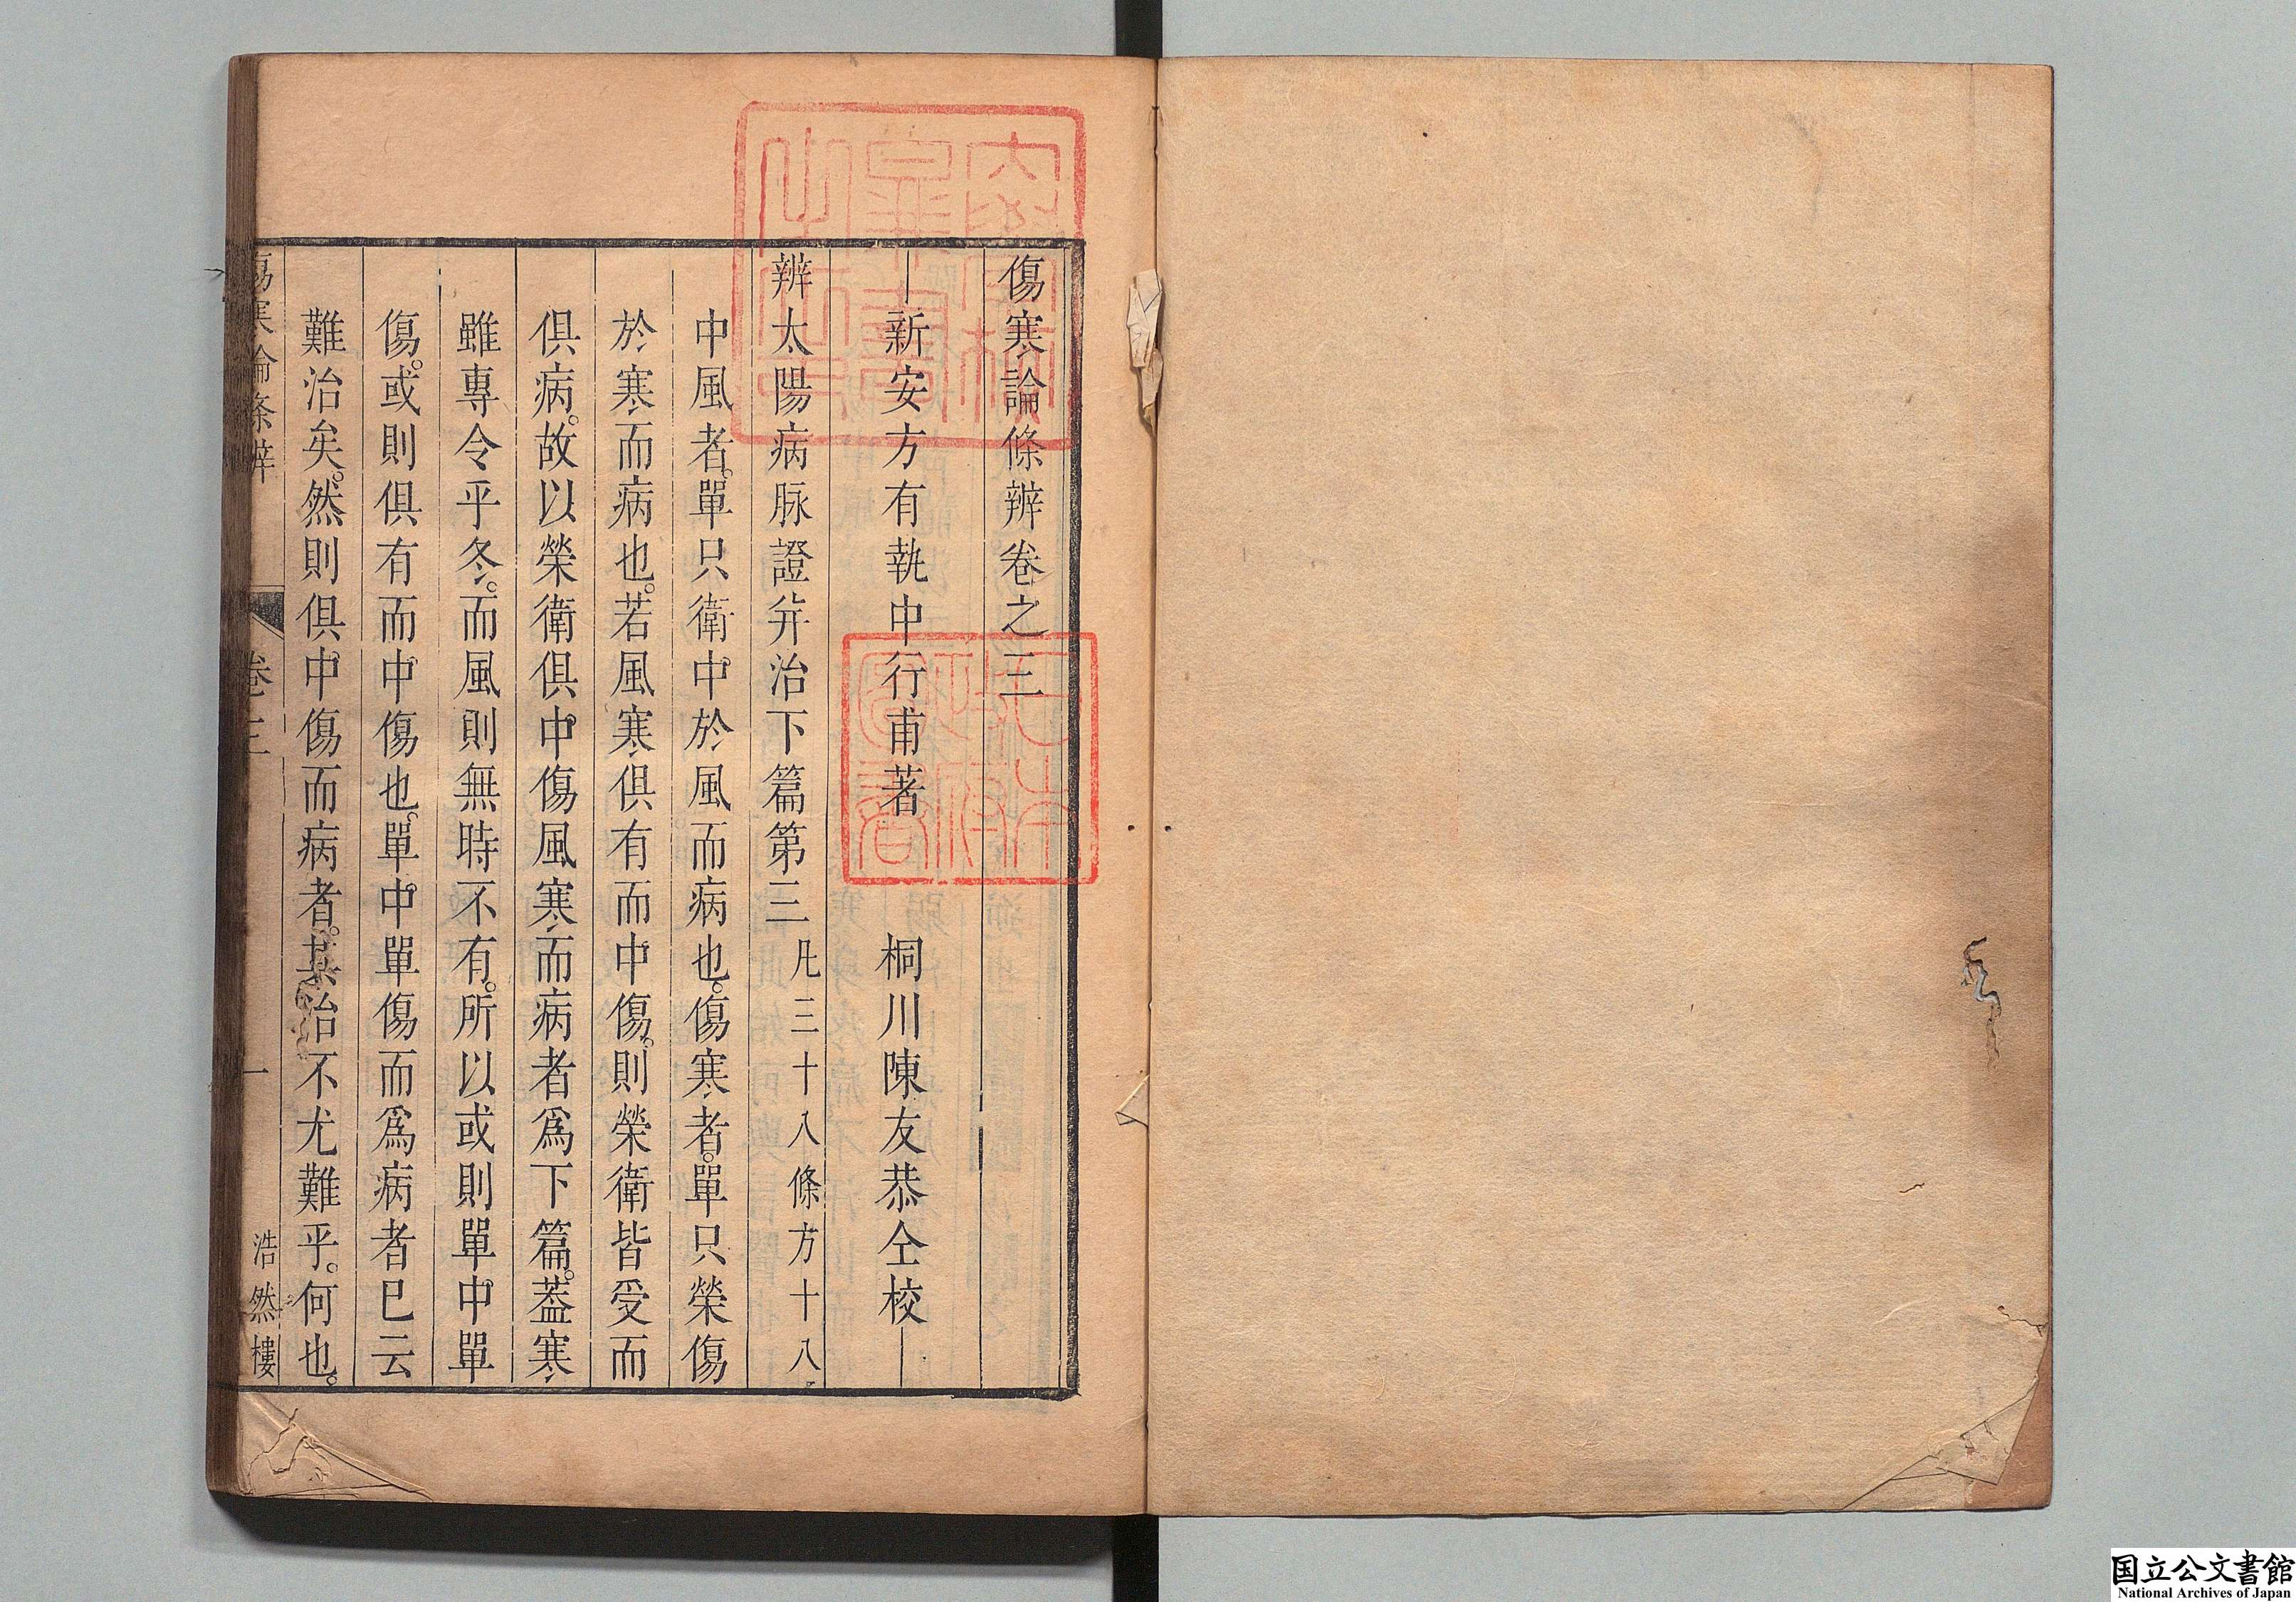 傷寒論條辨卷之三
新安方有執中行甫著　桐川陳友恭仝校
辨太陽病脉證并治下篇第三 凡三十八條方十八
中風者。單只衛中於風而病也。傷寒者。單只榮傷
於寒而病也。若風寒俱有而中傷。則榮衛皆受而
俱病。故以榮衛俱中傷風寒而病者爲下篇。葢寒
雖專令乎冬。而風則無時不有。所以或則單中單
傷。或則俱有而中傷也。單中單傷而爲病者巳云
難治矣。然則俱中傷而病者。其治不尤難乎。何也。
傷寒論條辨　卷三　一　浩然樓
国立公文書館
National Archives of Japan